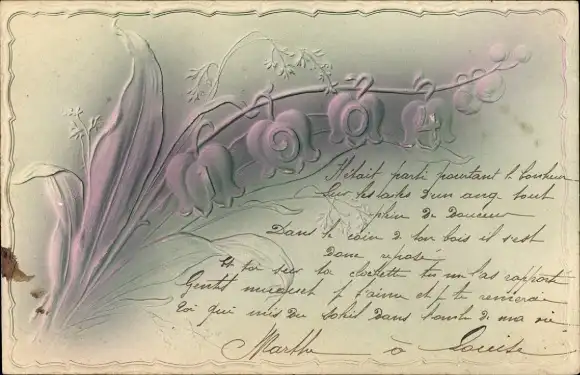 1904
Il était parti pourtant le bonheur
Sur les ailes d'un ange tout
plein de douceur
Dans le coin de ton bois il s'est
donc reposé
Et toi sur ta clochette tu me l'as rapporté
Gentil muguet je t'aime et je te remercie
Toi qui mis du soleil dans l'ombre de ma vie
Marthe à Louise